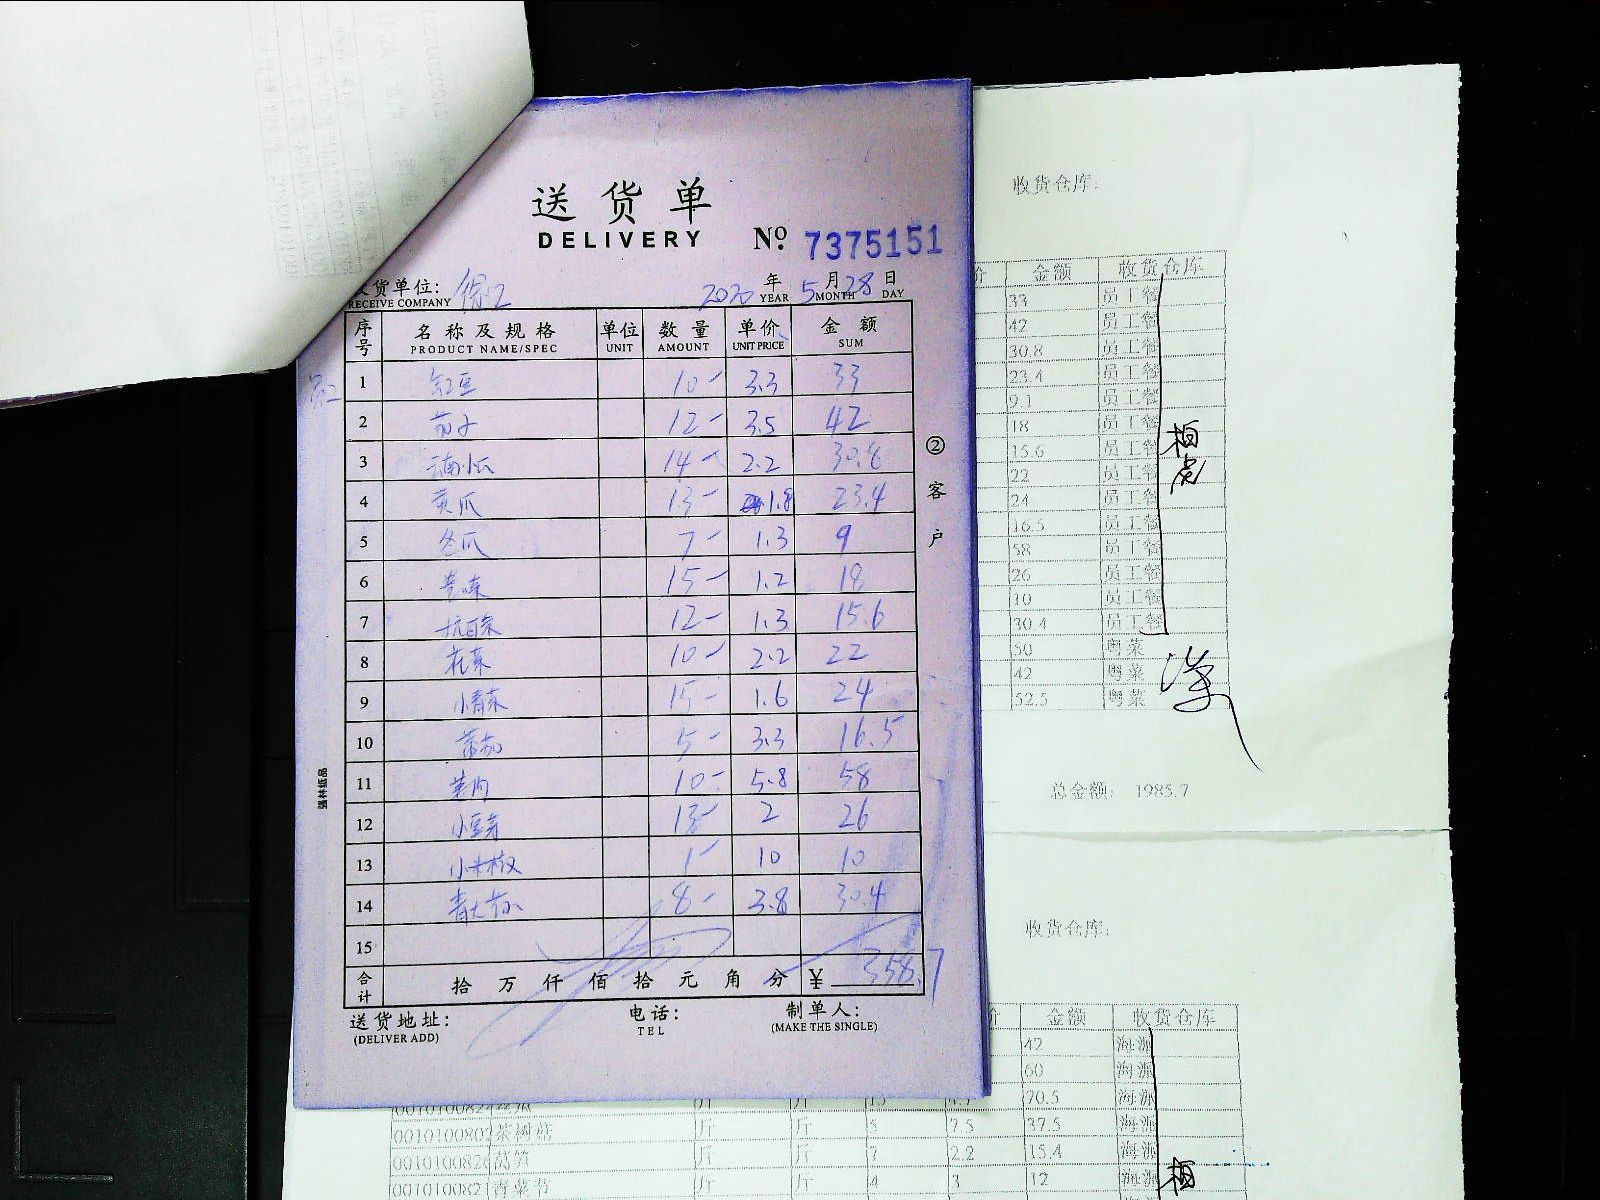 送货单
DELIVERY
No. 7375151
货单位:
RECEIVE COMPANY
2020 年 5 月 28 日
YEAR MONTH DAY
序号 名称及规格 单位 数量 单价 金额
PRODUCT NAME/SPEC UNIT AMOUNT UNIT PRICE SUM
1 豇豆 10 3.3 33
2 茄子 12 3.5 42
3 云南小瓜 14 2.2 30.8
4 黄瓜 13 1.8 23.4
5 冬瓜 7 1.3 9
6 15 1.2 18
7 12 1.3 15.6
8 花菜 10 2.2 22
9 小青菜 15 1.6 24
10 蕃茄 5 3.3 16.5
11 10 5.8 58
12 小豆芽 13 2 26
13 小米椒 1 10 10
14 8 3.8 30.4
15
合计 拾万仟佰拾元角分 ¥ 358.7
送货地址:
(DELIVER ADD)
电话:
TEL
制单人:
(MAKE THE SINGLE)
②客户
强林纸品
收货仓库:
价 金额 收货仓库
33 员工餐
42 员工餐
30.8 员工餐
23.4 员工餐
9.1 员工餐
18 员工餐
15.6 员工餐
22 员工餐
24 员工餐
16.5 员工餐
58 员工餐
26 员工餐
10 员工餐
30.4 员工餐
50 粤菜
42 粤菜
52.5 粤菜
总金额: 1985.7
收货仓库:
价 金额 收货仓库
42 海源
60 海源
斤 斤 15 4.7 70.5 海源
茶树菇 斤 斤 5 7.5 37.5 海源
莴笋 斤 斤 7 2.2 15.4 海源
斤 斤 4 3 12 海源